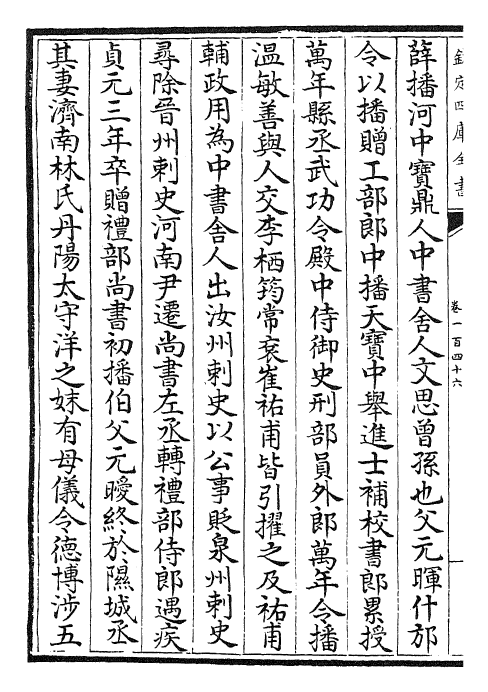 欽定四庫全書
卷一百四十六
薛播河中寶鼎人中書舍人文思曾孫也父元暉什邡
令以播贈工部郎中播天寶中舉進士補校書郎累授
萬年縣丞武功令殿中侍御史刑部員外郎萬年令播
温敏善與人交李栖筠常衮崔祐甫皆引擢之及祐甫
輔政用為中書舍人出汝州刺史以公事貶泉州刺史
尋除晉州刺史河南尹遷尚書左丞轉禮部侍郎遇疾
貞元三年卒贈禮部尚書初播伯父元曖終於隰城丞
其妻濟南林氏丹陽太守洋之妹有母儀令德博涉五